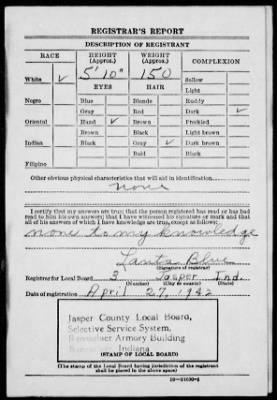 REGISTRAR'S REPORT
DESCRIPTION OF REGISTRANT
RACE HEIGHT (Approx.) WEIGHT (Approx.) COMPLEXION
White ✓ 5' 10" 150 Sallow
Light
EYES HAIR
Negro Blue Blonde Ruddy
Gray Red Dark ✓
Oriental Hazel ✓ Brown Freckled
Brown Black Light brown
Indian Black Gray ✓ Dark brown
Bald Black
Filipino
Other obvious physical characteristics that will aid in identification
none
I certify that my answers are true; that the person registered has read or has had
read to him his own answers; that I have witnessed his signature or mark and that
all of his answers of which I have knowledge are true, except as follows:
none to my knowledge
Blue
(Signature of registrar)
Registrar for Local Board 3 Jasper Ind.
(Number) (City or county) (State)
Date of registration April 27, 1942
Jasper County Local Board,
Selective Service System,
Rensselaer Armory Building
Rensselaer, Indiana
(STAMP OF LOCAL BOARD)
(The stamp of the Local Board having jurisdiction of the registrant
shall be placed in the above space)